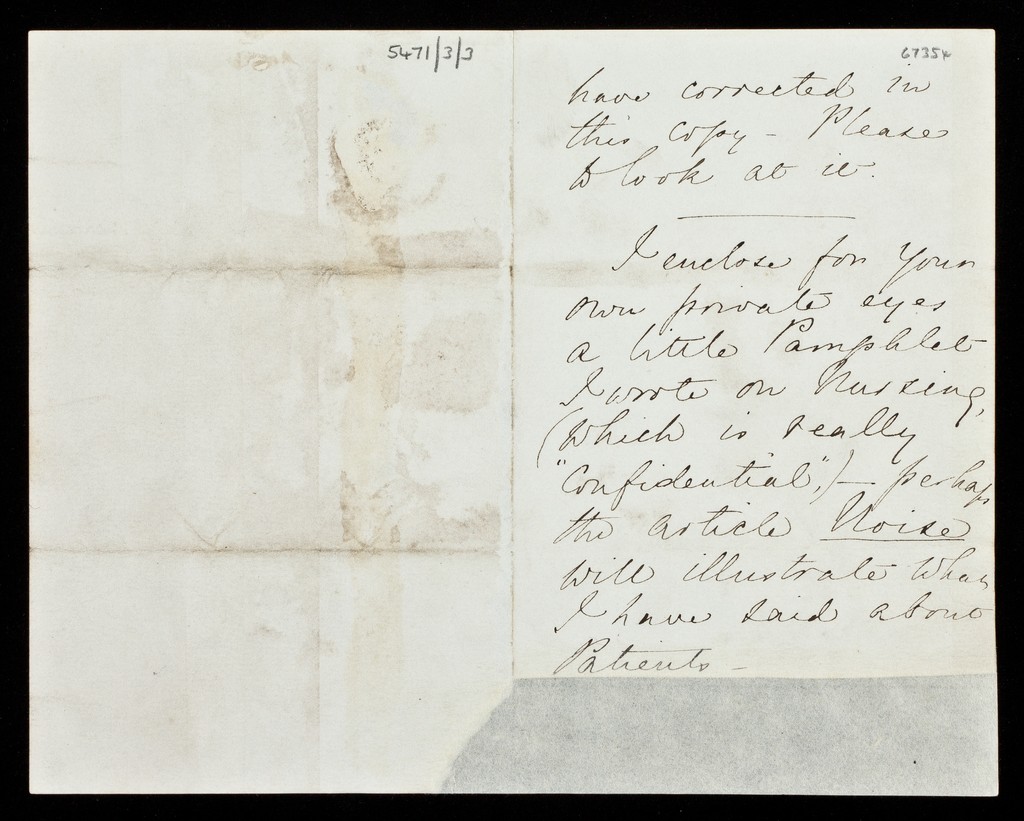 5471/3/3
67354
have corrected in
this copy - Please
to look at it.
I enclose for your
own private eyes
a little Pamphlet
I wrote on Nursing,
(which is really
"Confidential",) — perhaps
the article Noise
will illustrate what
I have said about
Patients -